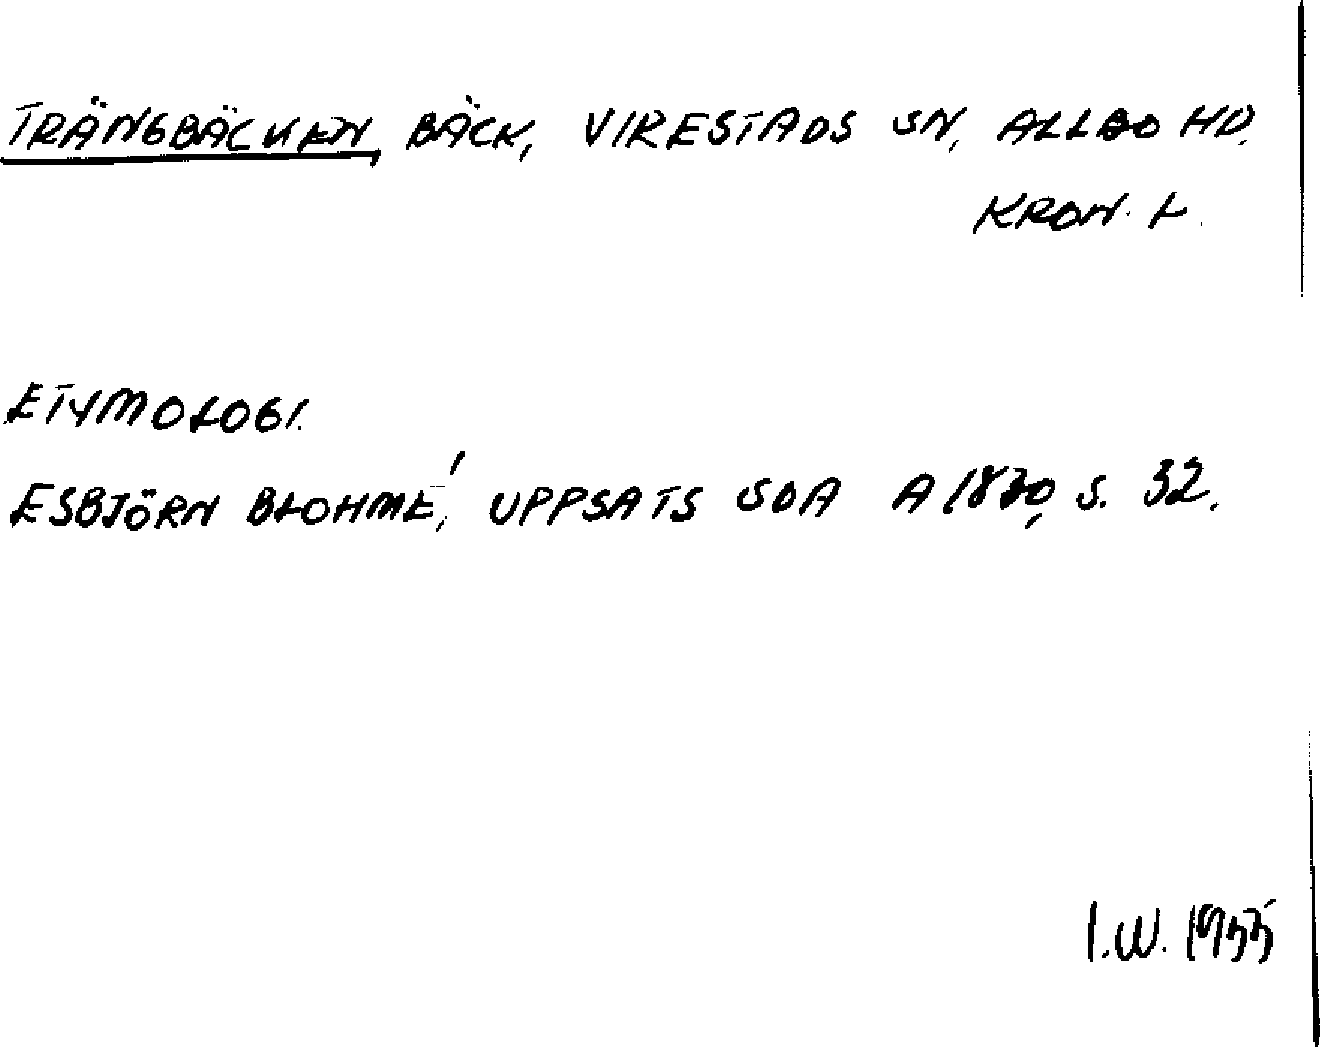 TRÄNGBÄCKEN, BÄCK, VIRESTADS SN, ALLBO HD.
KRON. L.
ETYMOLOGI.
ESBJÖRN BLOHMÉ, UPPSATS SOA A 1830, S. 32.
I.W. 1955